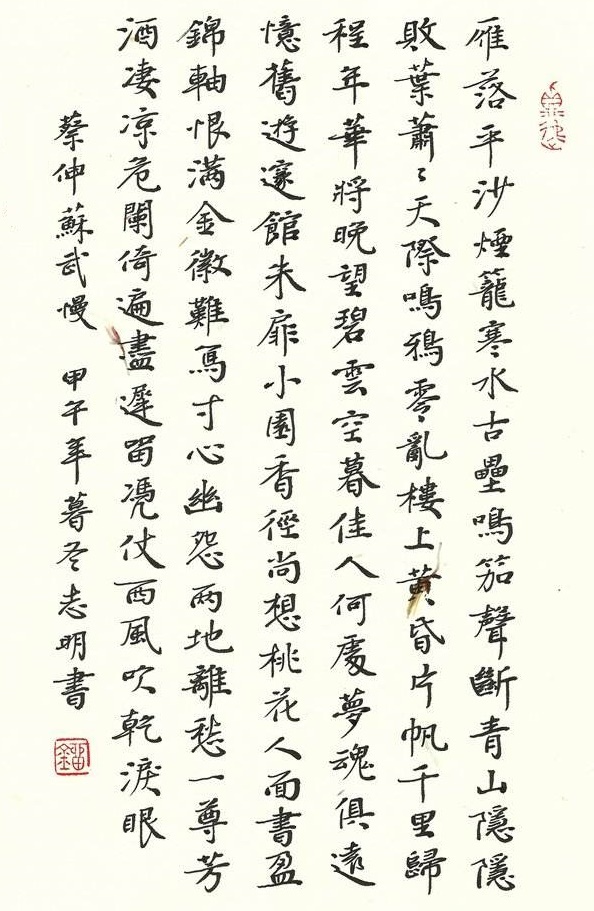 雁落平沙煙籠寒水古壘鳴笳聲斷青山隱隱
敗葉蕭〻天際鳴鴉零亂樓上黃昏片帆千里歸
程年華將晚望碧雲空暮佳人何處夢魂俱遠
憶舊遊邃館朱扉小園香徑尚想桃花人面書盈
錦軸恨滿金徽難寫寸心幽怨兩地離愁一尊芳
酒凄涼危闌倚遍盡遲留凴仗西風吹乾淚眼
蔡伸蘇武慢 甲午年暮冬志明書